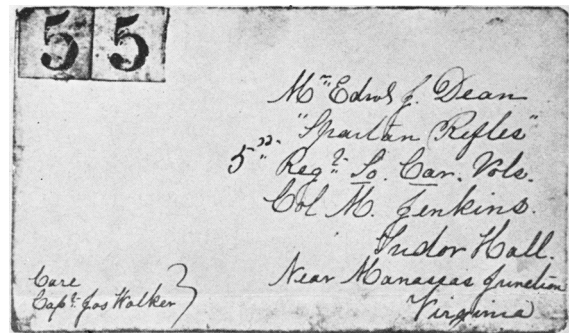 5 5
Mr. Edwd J. Dean
"Spartan Rifles"
5th Regt. So. Car. Vols.
Col M. Jenkins.
Tudor Hall.
Near Manassas Junction
Virginia
Care
Capt. Jos Walker